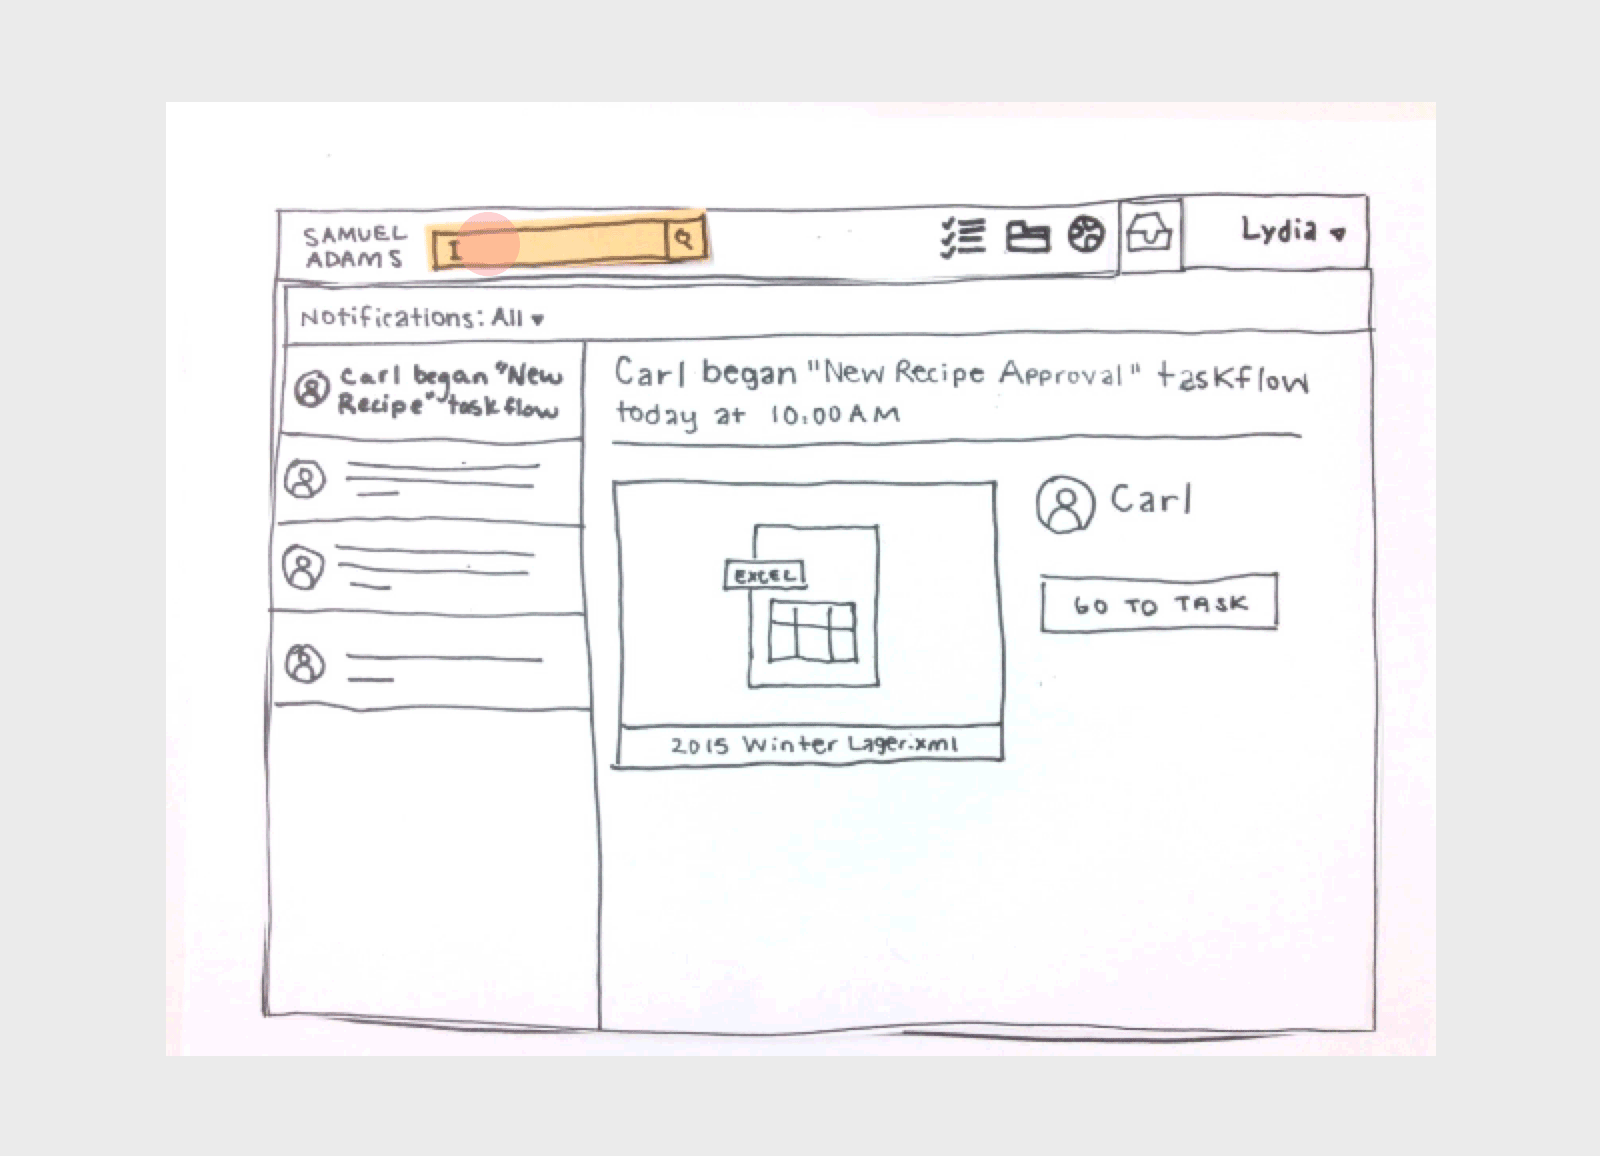 SAMUEL
ADAMS
I
Lydia
Notifications: All
Carl began "New
Recipe" taskflow
Carl began "New Recipe Approval" taskflow
today at 10:00 AM
EXCEL
Carl
GO TO TASK
2015 Winter Lager.xml